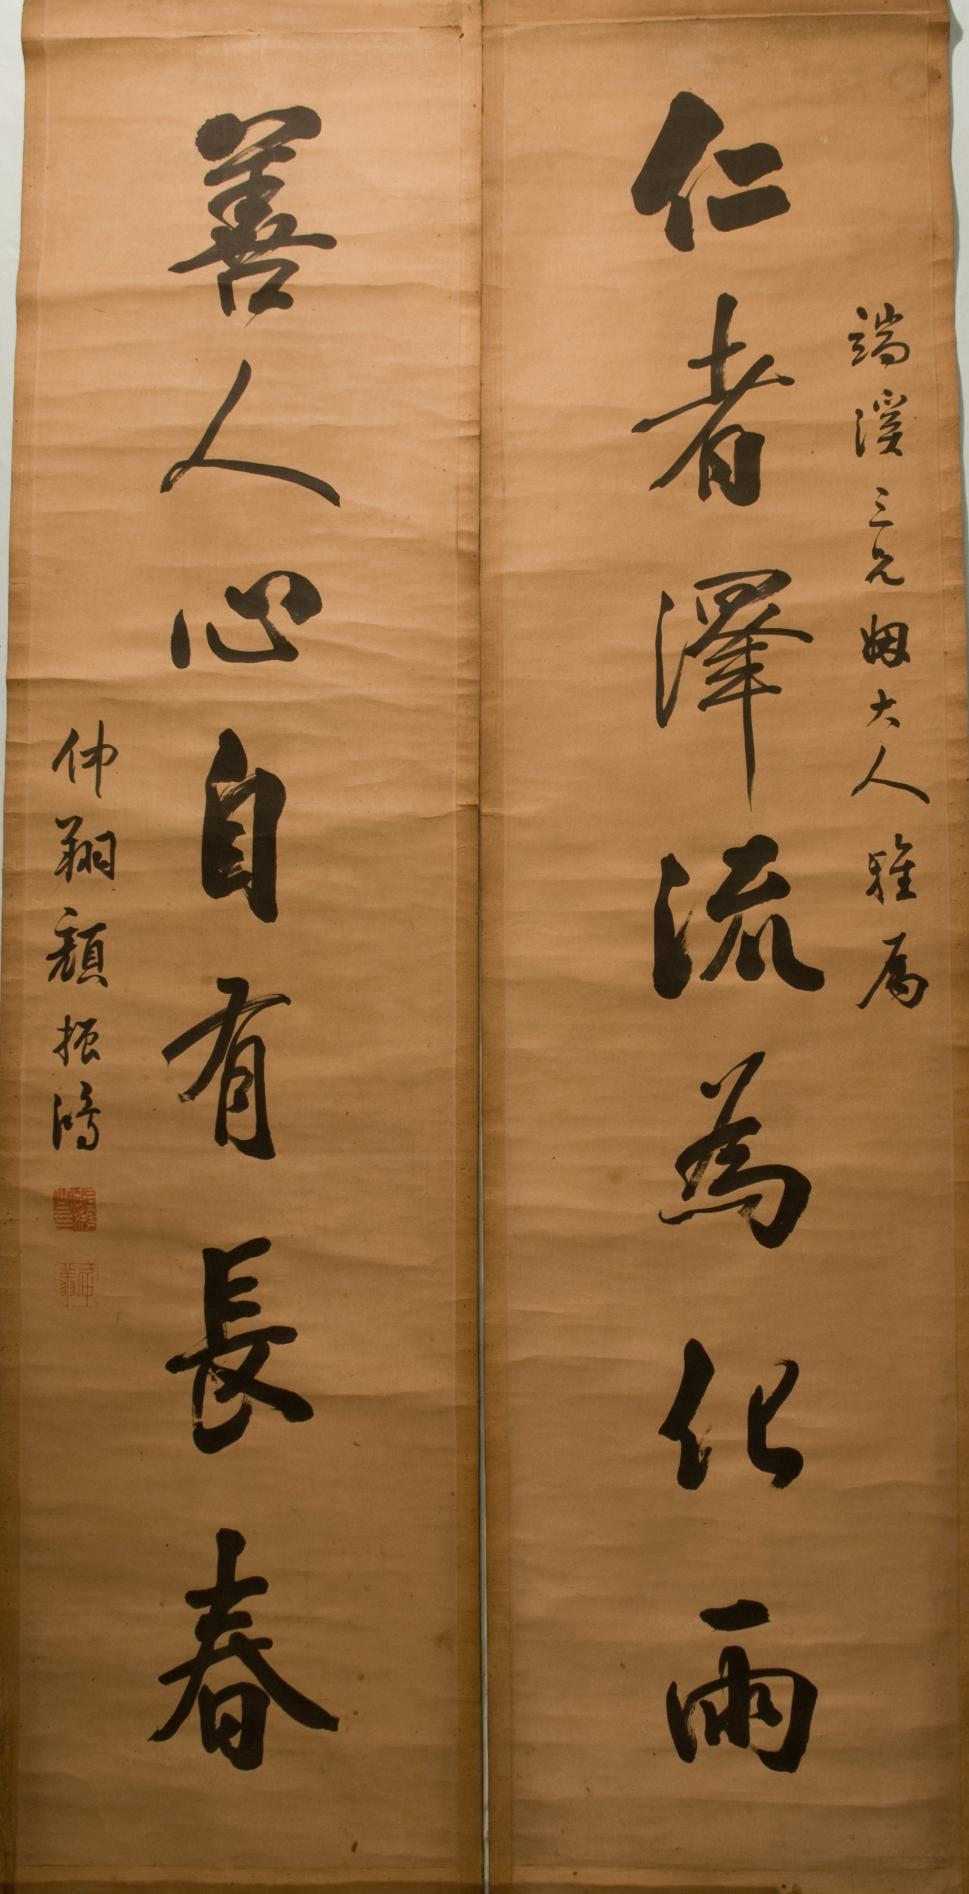 端溪三兄姻大人雅属
仁者澤流為化雨
善人心自有長春
仲翔顧振鴻